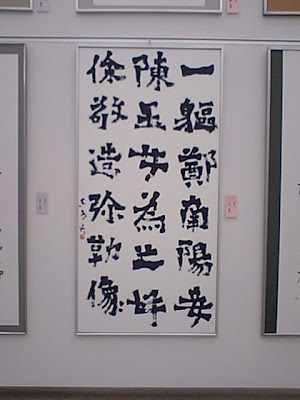 一軀鄭南陽妾
陳玉女為亡母
徐敬造弥勒像